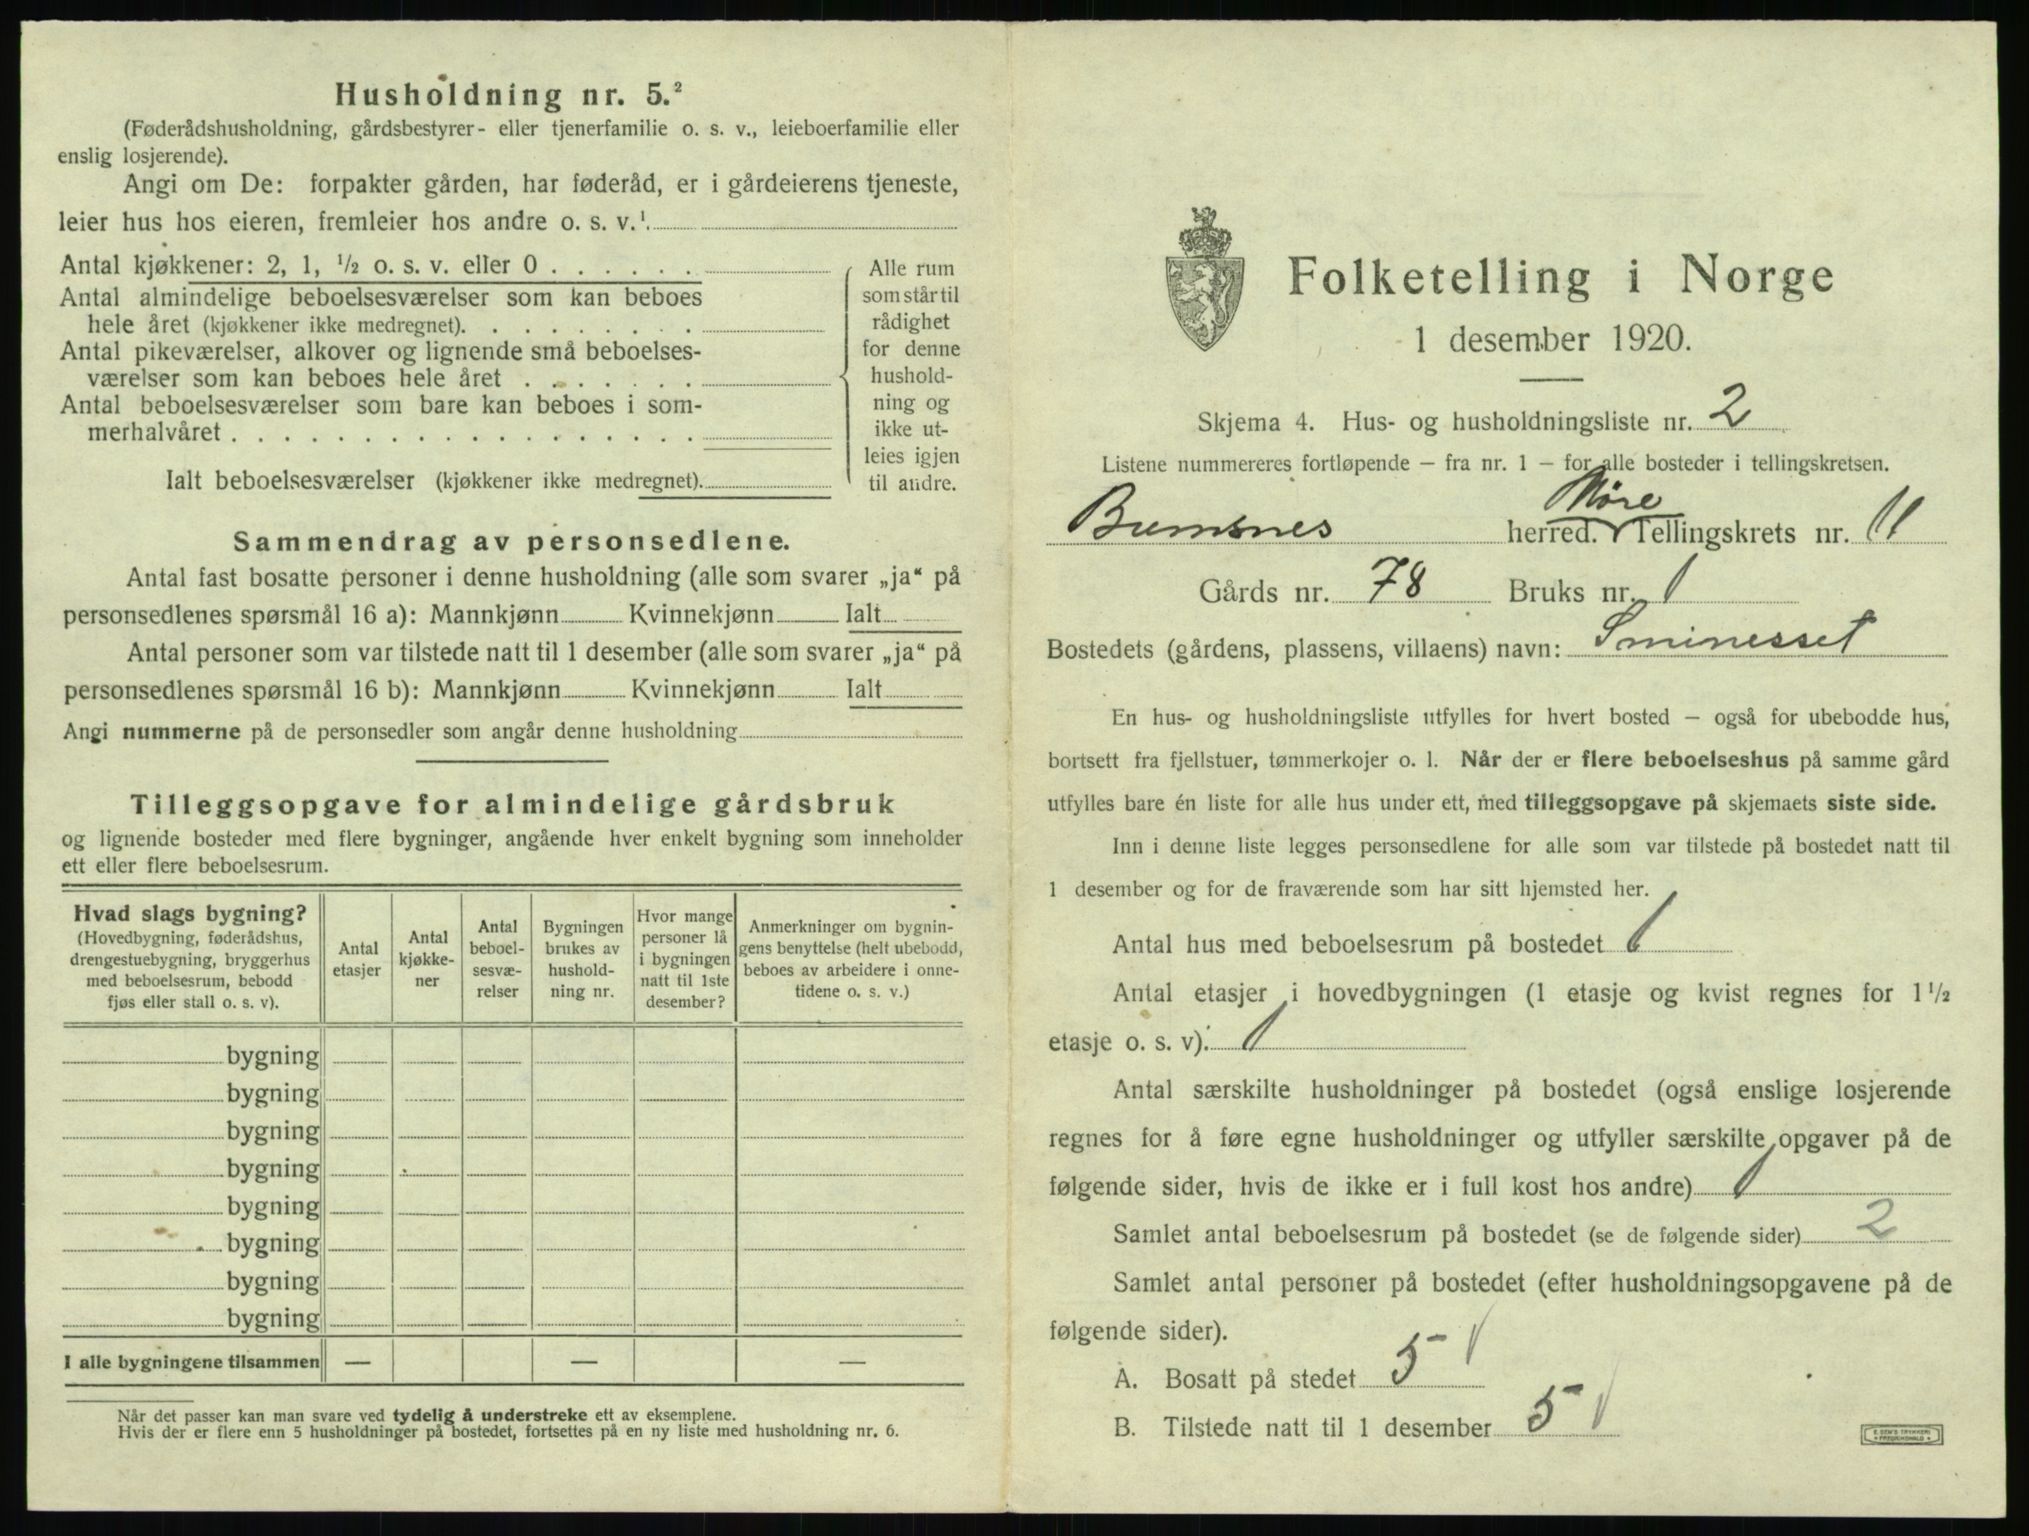 Husholdning nr. 5.²
(Føderådshusholdning, gårdsbestyrer- eller tjenerfamilie o. s. v., leieboerfamilie eller
enslig losjerende).
Angi om De: forpakter gården, har føderåd, er i gårdeierens tjeneste,
leier hus hos eieren, fremleier hos andre o. s. v.¹
Antal kjøkkener: 2, 1, ½ o. s. v. eller 0 . . . . . .
Antal almindelige beboelsesværelser som kan beboes
hele året (kjøkkener ikke medregnet). . . . . . . . .
Antal pikeværelser, alkover og lignende små beboelses-
værelser som kan beboes hele året . . . . . . .
Antal beboelsesværelser som bare kan beboes i som-
merhalvåret . . . . . . . . . . . . . . . . . .
Ialt beboelsesværelser (kjøkkener ikke medregnet).
Alle rum
som står til
rådighet
for denne
hushold-
ning og
ikke ut-
leies igjen
til andre.
Sammendrag av personsedlene.
Antal fast bosatte personer i denne husholdning (alle som svarer „ja“ på
personsedlenes spørsmål 16 a): Mannkjønn Kvinnekjønn Ialt
Antal personer som var tilstede natt til 1 desember (alle som svarer „ja“ på
personsedlenes spørsmål 16 b): Mannkjønn Kvinnekjønn Ialt
Angi nummerne på de personsedler som angår denne husholdning
Tilleggsopgave for almindelige gårdsbruk
og lignende bosteder med flere bygninger, angående hver enkelt bygning som inneholder
ett eller flere beboelsesrum.
Hvad slags bygning?
(Hovedbygning, føderådshus,
drengestuebygning, bryggerhus
med beboelsesrum, bebodd
fjøs eller stall o. s. v).
Antal
etasjer
Antal
kjøkke-
ner
Antal
beboel-
sesvæ-
relser
Bygningen
brukes av
hushold-
ning nr.
Hvor mange
personer lå
i bygningen
natt til 1ste
desember?
Anmerkninger om bygnin-
gens benyttelse (helt ubebodd,
beboes av arbeidere i onne-
tidene o. s. v.)
bygning
bygning
bygning
bygning
bygning
bygning
bygning
bygning
I alle bygningene tilsammen — — —
Når det passer kan man svare ved tydelig å understreke ett av eksemplene.
Hvis der er flere enn 5 husholdninger på bostedet, fortsettes på en ny liste med husholdning nr. 6.
Folketelling i Norge
1 desember 1920.
Skjema 4. Hus- og husholdningsliste nr. 2
Listene nummereres fortløpende — fra nr. 1 — for alle bosteder i tellingskretsen.
Møre
Bremsnes herred. Tellingskrets nr. 11
Gårds nr. 78 Bruks nr. 1
Bostedets (gårdens, plassens, villaens) navn: Sminesset
En hus- og husholdningsliste utfylles for hvert bosted — også for ubebodde hus,
bortsett fra fjellstuer, tømmerkojer o. l. Når der er flere beboelseshus på samme gård
utfylles bare én liste for alle hus under ett, med tilleggsopgave på skjemaets siste side.
Inn i denne liste legges personsedlene for alle som var tilstede på bostedet natt til
1 desember og for de fraværende som har sitt hjemsted her.
Antal hus med beboelsesrum på bostedet 1
Antal etasjer i hovedbygningen (1 etasje og kvist regnes for 1½
etasje o. s. v). 1
Antal særskilte husholdninger på bostedet (også enslige losjerende
regnes for å føre egne husholdninger og utfyller særskilte opgaver på de
følgende sider, hvis de ikke er i full kost hos andre) 1
Samlet antal beboelsesrum på bostedet (se de følgende sider) 2
Samlet antal personer på bostedet (efter husholdningsopgavene på de
følgende sider).
A. Bosatt på stedet 5
B. Tilstede natt til 1 desember 5
E. SEM'S TRYKKERI
FREDRIKSHALD